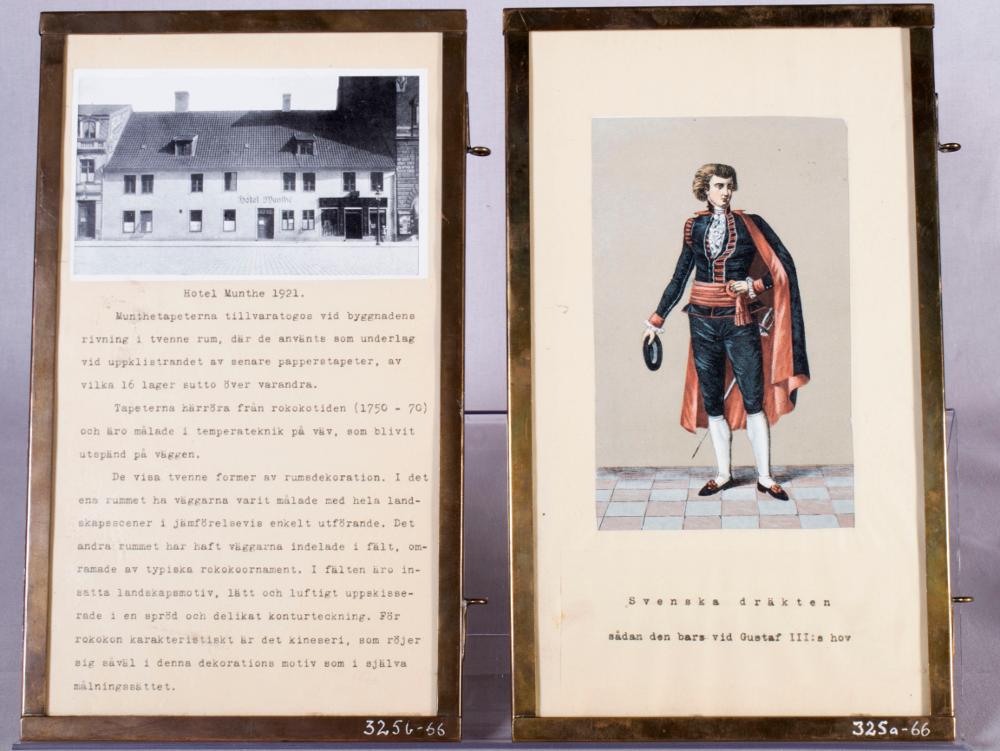 Hotel Munthe
Hotel Munthe 1921.
Munthetapeterna tillvaratogos vid byggnadens
rivning i tvenne rum, där de använts som underlag
vid uppklistrandet av senare papperstapeter, av
vilka 16 lager sutto över varandra.
Tapeterna härröra från rokokotiden (1750 - 70)
och äro målade i temperateknik på väv, som blivit
utspänd på väggen.
De visa tvenne former av rumsdekoration. I det
ena rummet ha väggarna varit målade med hela land-
skapsscener i jämförelsevis enkelt utförande. Det
andra rummet har haft väggarna indelade i fält, om-
ramade av typiska rokokoornament. I fälten äro in-
satta landskapsmotiv, lätt och luftigt uppskisse-
rade i en spröd och delikat konturteckning. För
rokokon karakteristiskt är det kineseri, som röjer
sig såväl i denna dekorations motiv som i själva
målningssättet.
325b-66
Svenska dräkten
sådan den bars vid Gustaf III:s hov
325a-66